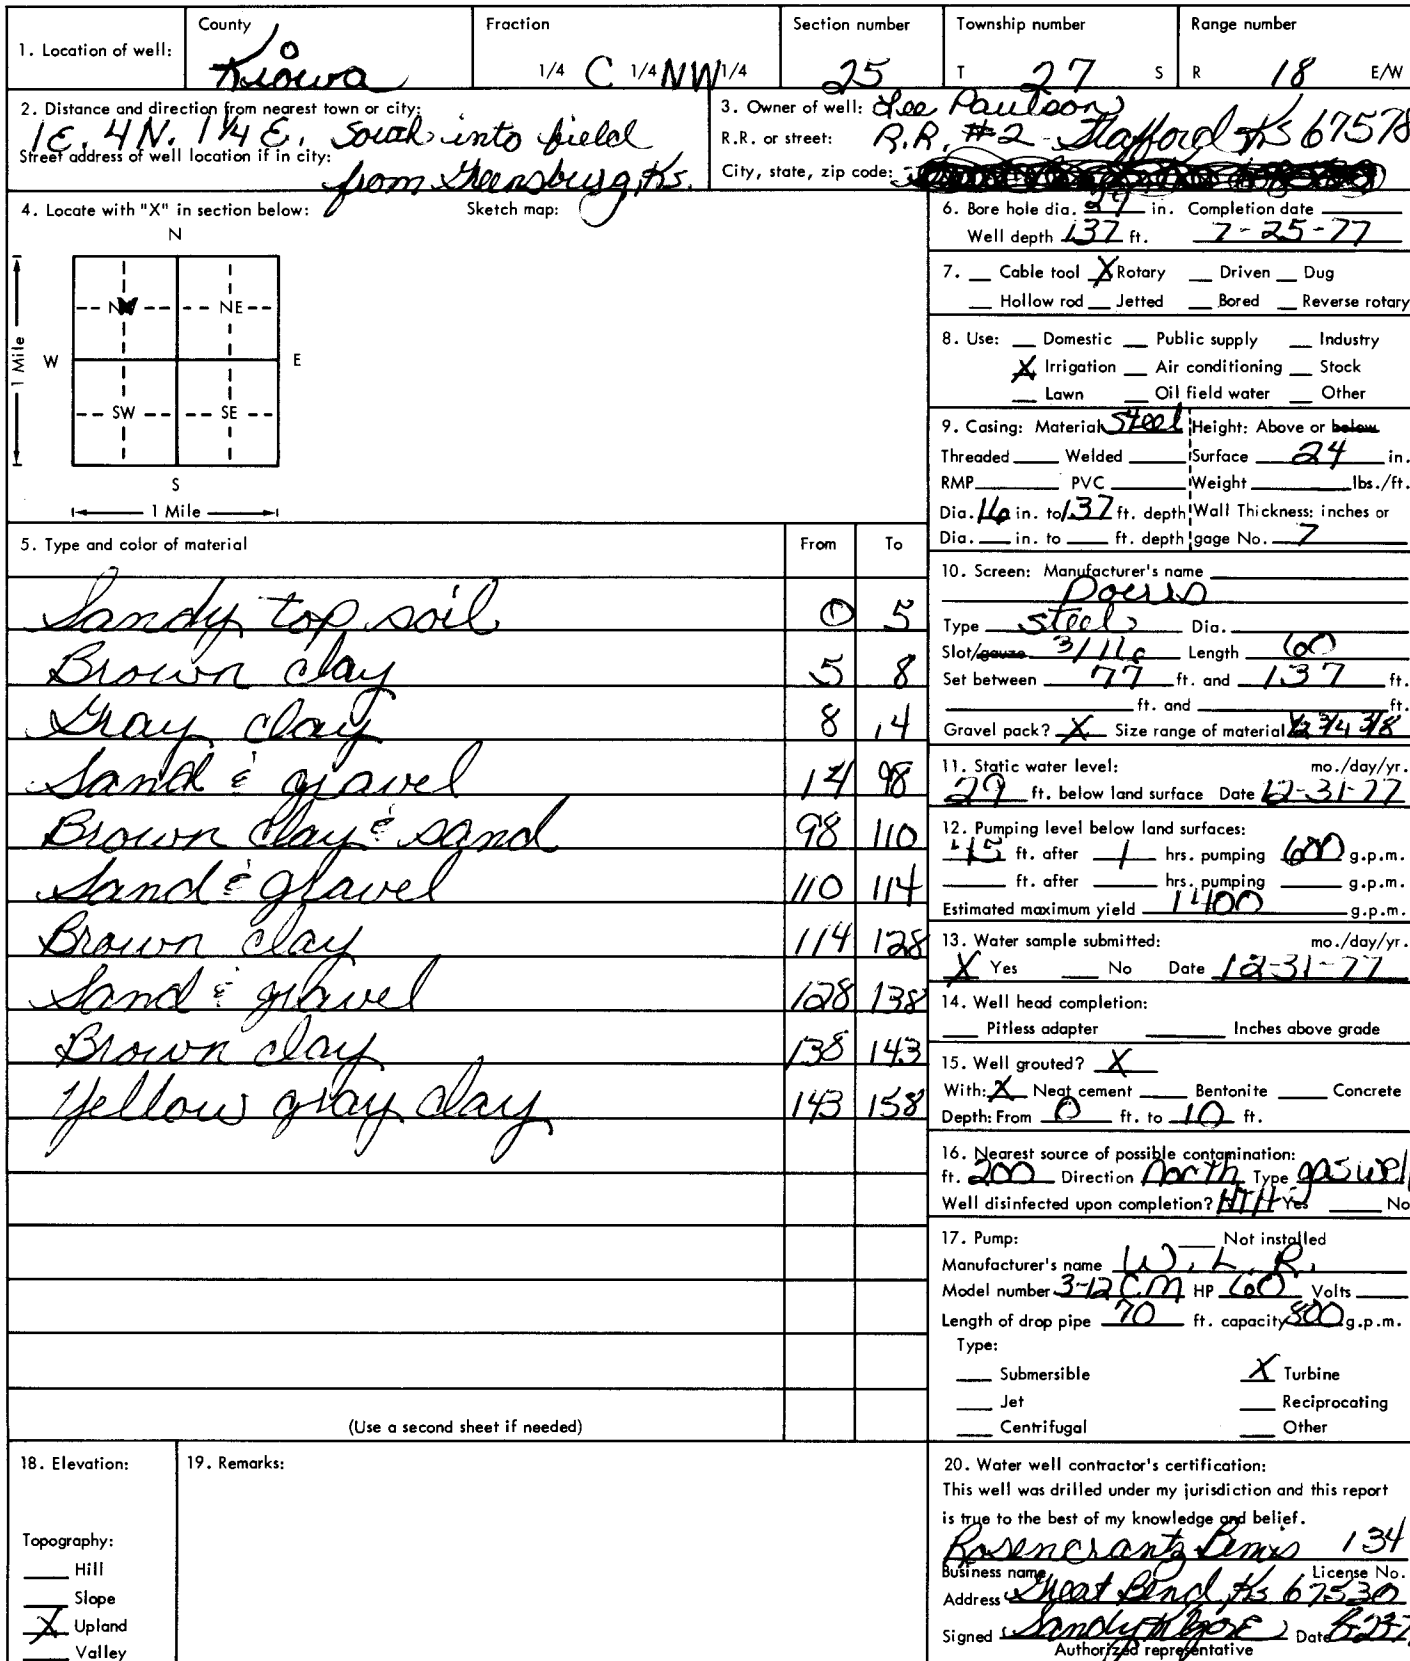 1. Location of well: County Kiowa Fraction 1/4 C 1/4 NW 1/4 Section number 25 Township number T 27 S Range number R 18 E/W
2. Distance and direction from nearest town or city:
1E, 4N, 1 1/4 E, South into field
Street address of well location if in city:
from Greensburg, Ks.
3. Owner of well: Lee Paulson
R.R. or street: R.R. #2 - Stafford Ks 67578
City, state, zip code:
4. Locate with "X" in section below: Sketch map:
N
NW NE
1 Mile W E
SW SE
S
1 Mile
5. Type and color of material From To
Sandy top soil 0 5
Brown clay 5 8
Gray clay 8 14
Sand & gravel 14 98
Brown clay & sand 98 110
Sand & gravel 110 114
Brown clay 114 128
Sand & gravel 128 138
Brown clay 138 143
Yellow gray clay 143 158
(Use a second sheet if needed)
6. Bore hole dia. in. Completion date
Well depth 137 ft. 7-25-77
7. Cable tool X Rotary Driven Dug
Hollow rod Jetted Bored Reverse rotary
8. Use: Domestic Public supply Industry
X Irrigation Air conditioning Stock
Lawn Oil field water Other
9. Casing: Material Steel Height: Above or below
Threaded Welded Surface 24 in.
RMP PVC Weight lbs./ft.
Dia. 16 in. to 137 ft. depth Wall Thickness: inches or
Dia. in. to ft. depth gage No. 7
10. Screen: Manufacturer's name
Type steel Dia.
Slot/gauze 3/16 Length 60
Set between 77 ft. and 137 ft.
ft. and ft.
Gravel pack? X Size range of material
11. Static water level: mo./day/yr.
29 ft. below land surface Date 12-31-77
12. Pumping level below land surfaces:
ft. after 1 hrs. pumping 600 g.p.m.
ft. after hrs. pumping g.p.m.
Estimated maximum yield 1400 g.p.m.
13. Water sample submitted: mo./day/yr.
X Yes No Date 12-31-77
14. Well head completion:
Pitless adapter Inches above grade
15. Well grouted? X
With: X Neat cement Bentonite Concrete
Depth: From 0 ft. to 10 ft.
16. Nearest source of possible contamination:
ft. 200 Direction North Type gas well
Well disinfected upon completion? HTH Yes No
17. Pump: Not installed
Manufacturer's name W. L. R.
Model number 3-12 CM HP 60 Volts
Length of drop pipe 70 ft. capacity 800 g.p.m.
Type:
Submersible X Turbine
Jet Reciprocating
Centrifugal Other
18. Elevation:
Topography:
Hill
Slope
X Upland
Valley
19. Remarks:
20. Water well contractor's certification:
This well was drilled under my jurisdiction and this report
is true to the best of my knowledge and belief.
Rosencrantz Bemis 134
Business name License No.
Address Great Bend, Ks 67530
Signed Date
Authorized representative